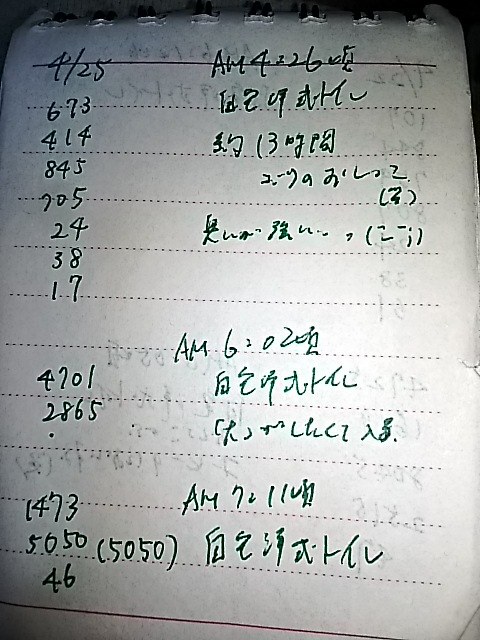 4/25 AM4:26頃
673 自宅洋式トイレ
414 約13時間
845 ぶりのおしっこ
705 (笑)
24 臭いが強い…(ニニ;)
38
17
AM6:02頃
4701 自宅洋式トイレ
2865 (大)がしたくて入る.
AM7:11頃
1473
5050(5050) 自宅洋式トイレ
46